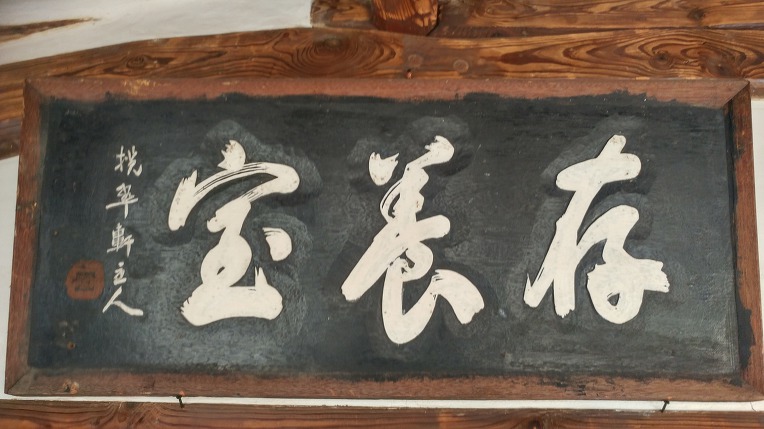 存養室
挹翠軒主人